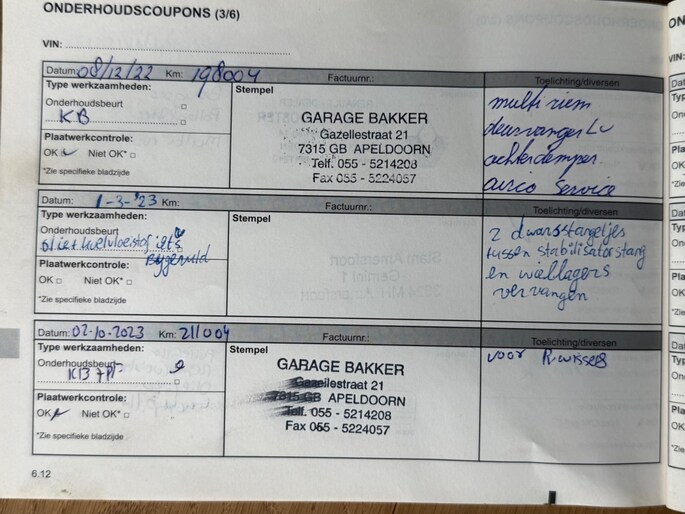 ONDERHOUDSCOUPONS (3/6)
VIN:
Datum: 08/12/22 Km: 198004 Factuurnr.: Toelichting/diversen
Type werkzaamheden:
Onderhoudsbeurt
KB
Plaatwerkcontrole:
OK Niet OK*
*Zie specifieke bladzijde
Stempel
GARAGE BAKKER
Gazellestraat 21
7315 GB APELDOORN
Telf. 055 - 5214208
Fax 055 - 5224057
multi riem
deurvanger Lv
achterdemper.
airco service
Datum: 1-3-'23 Km: Factuurnr.: Toelichting/diversen
Type werkzaamheden:
Onderhoudsbeurt
olie + koelvloeistof iets
bijgevuld
Plaatwerkcontrole:
OK Niet OK*
*Zie specifieke bladzijde
Stempel
Stam Amersfoort
Gemini 1
2 dwarsstangetjes
tussen stabilisatorstang
en wiellagers
vervangen
Datum: 02-10-2023 Km: 211004 Factuurnr.: Toelichting/diversen
Type werkzaamheden:
Onderhoudsbeurt
Plaatwerkcontrole:
OK Niet OK*
*Zie specifieke bladzijde
Stempel
GARAGE BAKKER
Gazellestraat 21
7315 GB APELDOORN
Telf. 055 - 5214208
Fax 055 - 5224057
voor R.wissers
6.12